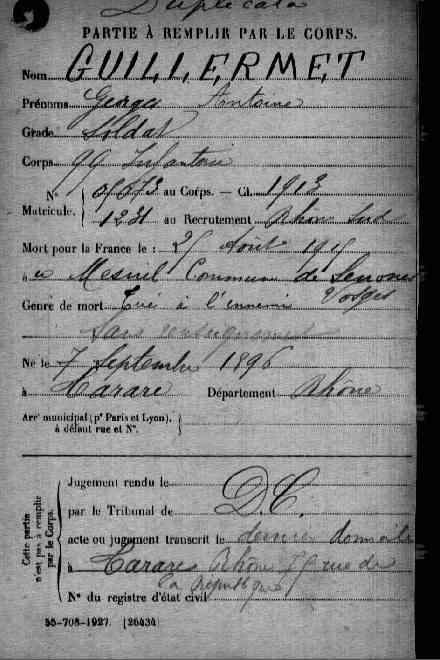 Duplicata
PARTIE À REMPLIR PAR LE CORPS.
Nom GUILLERMET
Prénoms Antoine
Grade Soldat
Corps 99 Infanterie
N° au Corps. — Cl. 1913
Matricule. 1231 au Recrutement Rhône Sud
Mort pour la France le : 25 Août
à Mesnil Commune de Senones
Genre de mort Tué à l'ennemi Vosges
Sans renseignements
Né le 7 Septembre 1896
à Département Rhône
Arr' municipal (p' Paris et Lyon),
à défaut rue et N°.
Cette partie n'est pas à remplir par le Corps.
Jugement rendu le
par le Tribunal de D.C.
acte ou jugement transcrit le dernier domicile
à Rhône rue de
la République
N° du registre d'état civil
55-708-1927. [26434]